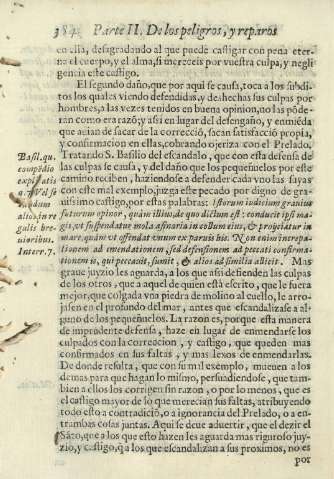 384 Parte II. De los peligros, y reparos
en ella, desagradando al que puede castigar con pena eter-
na el cuerpo, y el alma, si incurreis por vuestra culpa, y negli
gencia este castigo.
El segundo daño, que por aqui se causa, toca a los subdi
tos los quales viendo defendidas, y deshechas las culpas por
hombres, a las vezes tenidos en buena opinion, no las põde
ran como era razõ; y assi en lugar del desengaño, y enmiẽda
que auian de sacar de la correcciõ, sacan satisfacciõ propia,
y confirmacion en ellas, cobrando ojeriza con el Prelado.
Tratando S. Basilio del escandalo, que con esta defensa de
las culpas se causa, y del daño que los pequeñuelos por este
camino reciben, haziendose a defender cada vno las suyas
con este mal exemplo, juzga este pecado por digno de gra-
uissimo castigo, por estas palabras: Istorum iudicium grauius
futurum opinor, quàm illius, de quo dictum est: conducit ipsi ma-
gis, vt suspendatur mola asinaria in collum eius, & proyciatur in
mare, quàm vt offendat vnum ex parvis his. Non enim increpa-
tionem ad emendationem, sed defensionem ad peccati confirma-
tionem is, qui peccauit, sumit, & alios ad similia allicit. Mas
graue juyzio les aguarda, a los que assi defienden las culpas
de los otros, que a aquel de quien està escrito, que le fuera
mejor, que colgada vna piedra de molino al cuello, le arro-
jassen en el profundo del mar, antes que escandalizasse a al-
guno de los pequeñuelos. La razon es, porque esta manera
de imprudente defensa, haze en lugar de enmendarse los
culpados con la correccion, y castigo, que queden mas
confirmados en sus faltas, y mas lexos de enmendarlas.
De donde resulta, que con su mal exemplo, mueuen a los
demas para que hagan lo mismo, persuadiendose, que tam-
bien a ellos los corrigen sin razon, o por lo menos, que es
el castigo mayor de lo que merecian sus faltas, atribuyendo
todo esto a contradiciõ, o a ignorancia del Prelado, o a en-
trambas cosas juntas. Aqui se deue aduertir, que el dezir el
Sãto, que a los que esto hazen les aguarda mas riguroso juy-
zio, y castigo, q̃ a los que escandalizan a sus proximos, no es
por
Basil. qu.
compẽdio
explicatis
a. 7.
alios in re
galis bre-
uioribus.
Interr. 7.